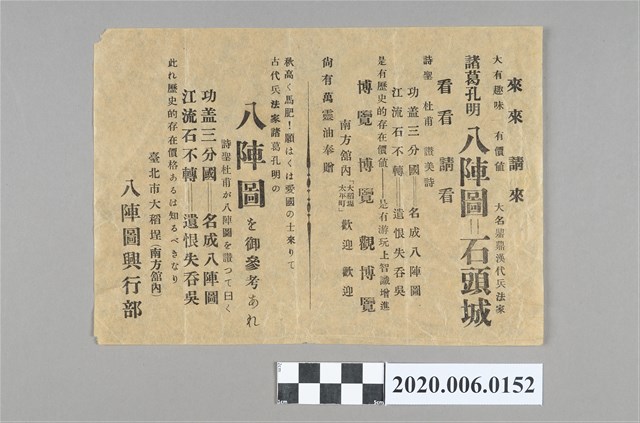 來來請來
大有趣味　有價値　大名鼎鼎漢代兵法家
諸葛孔明　八陣圖＝石頭城
看看請看
詩聖　杜甫　讚美詩
功蓋三分國＝名成八陣圖
江流石不轉＝遺恨失吞吳
是有歷史的存在價値＝是有游玩上智識增進
博覽　博覽　觀博覽
南方館內「大稻埕太平町」歡迎　歡迎
尙有萬靈油奉贈
秋高く馬肥！願はくは愛國の士來りて
古代兵法家諸葛孔明の
八陣圖を御參考あれ
詩聖杜甫が八陣圖を讚つて曰く
功蓋三分國＝名成八陣圖
江流石不轉＝遺恨失吞吳
此れ歷史的存在價格あるは知るべきなり
臺北市大稻埕（南方舘內）
八陣圖興行部
1cm
5cm
2020.006.0152